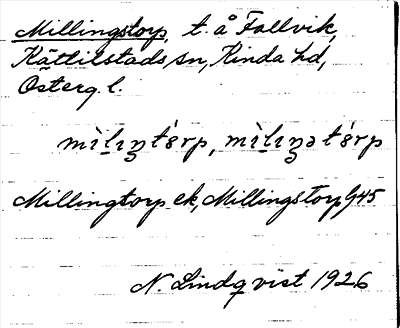 Millingstorp, t. å Fallvik,
Kättilstads sn, Kinda hd,
Österg. l.
mìlıŋtórp, mìlıŋətórp
Millingtorp ek, Millingstorp G45
N. Lindqvist 1926